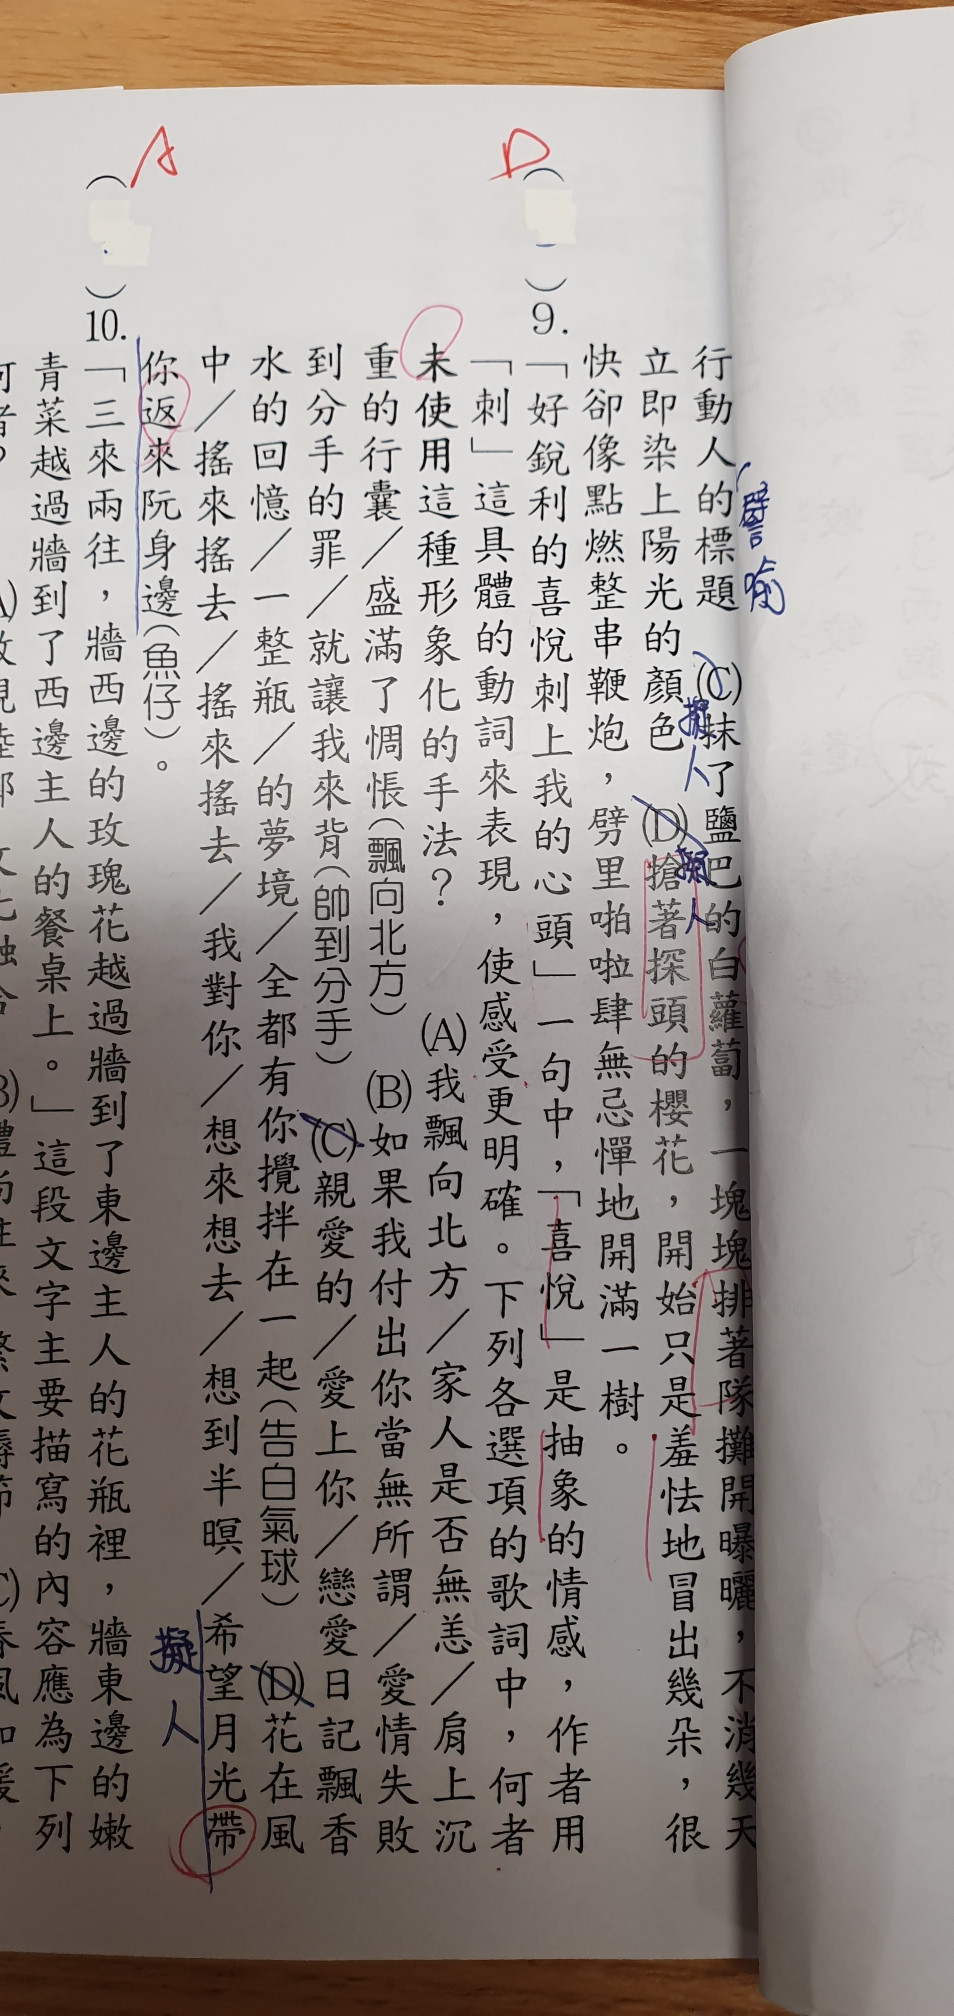 行動人的標題　(C)抹了鹽巴的白蘿蔔，一塊塊排著隊攤開曝曬，不消幾天
譬喻
擬人
立即染上陽光的顏色　(D)搶著探頭的櫻花，開始只是羞怯地冒出幾朵，很
擬人
快卻像點燃整串鞭炮，劈里啪啦肆無忌憚地開滿一樹。
D
(　)9.「好銳利的喜悅刺上我的心頭」一句中，「喜悅」是抽象的情感，作者用
「刺」這具體的動詞來表現，使感受更明確。下列各選項的歌詞中，何者
未使用這種形象化的手法？　(A)我飄向北方／家人是否無恙／肩上沉
重的行囊／盛滿了惆悵(飄向北方)　(B)如果我付出你當無所謂／愛情失敗
到分手的罪／就讓我來背(帥到分手)　(C)親愛的／愛上你／戀愛日記飄香
水的回憶／一整瓶／的夢境／全都有你攪拌在一起(告白氣球)　(D)花在風
中／搖來搖去／搖來搖去／我對你／想來想去／想到半暝／希望月光帶
擬人
你返來阮身邊(魚仔)。
A
(　)10.「三來兩往，牆西邊的玫瑰花越過牆到了東邊主人的花瓶裡，牆東邊的嫩
青菜越過牆到了西邊主人的餐桌上。」這段文字主要描寫的內容應為下列